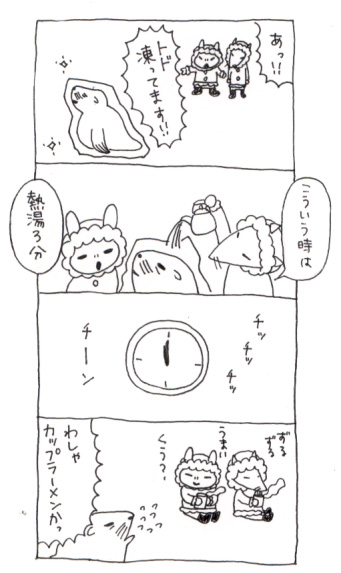 あっ!!
トド
凍ってます!!
こういう時は
熱湯3分
チッ
チッ
チッ
チーン
ずる
ずる
うまい
くう?
わしゃ
カップラーメンかっ